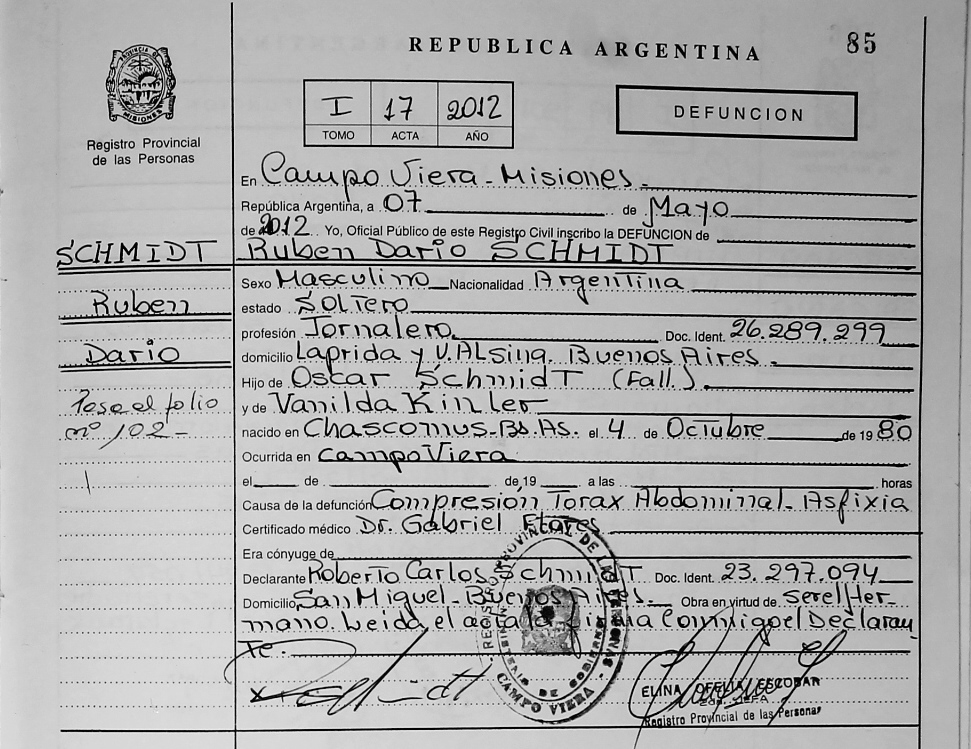 REPUBLICA ARGENTINA
85
PROVINCIA DE MISIONES
Registro Provincial
de las Personas
I 17 2012
TOMO ACTA AÑO
DEFUNCION
En Campo Viera - Misiones
República Argentina, a 07 de Mayo
de 2012 Yo, Oficial Público de este Registro Civil inscribo la DEFUNCION de
SCHMIDT
Ruben
Dario
Pasa al folio
nº 102 -
Ruben Dario SCHMIDT
Sexo Masculino Nacionalidad Argentina
estado Soltero
profesión Jornalero. Doc. Ident. 26.289.299
domicilio Laprida y V. ALsina. Buenos Aires.
Hijo de Oscar Schmidt (Fall.).
y de Vanilda Kinler
nacido en Chascomus - Bs. As. el 4 de Octubre de 19 80
Ocurrida en campo Viera
el de de 19 a las horas
Causa de la defunción Compresión Torax Abdominal - Asfixia
Certificado médico Dr. Gabriel Flores
Era cónyuge de
Declarante Roberto Carlos Schmidt Doc. Ident. 23.297.094
Domicilio San Miguel - Buenos Aires. Obra en virtud de ser el Her-
mano. Leida el acta la firma Conmigo el Declaran
Te.
REGISTRO PROVINCIAL DE LAS PERSONAS
MINISTERIO DE GOBIERNO
CAMPO VIERA
ELINA OFELIA ESCOBAR
JEFA
Registro Provincial de las Personas